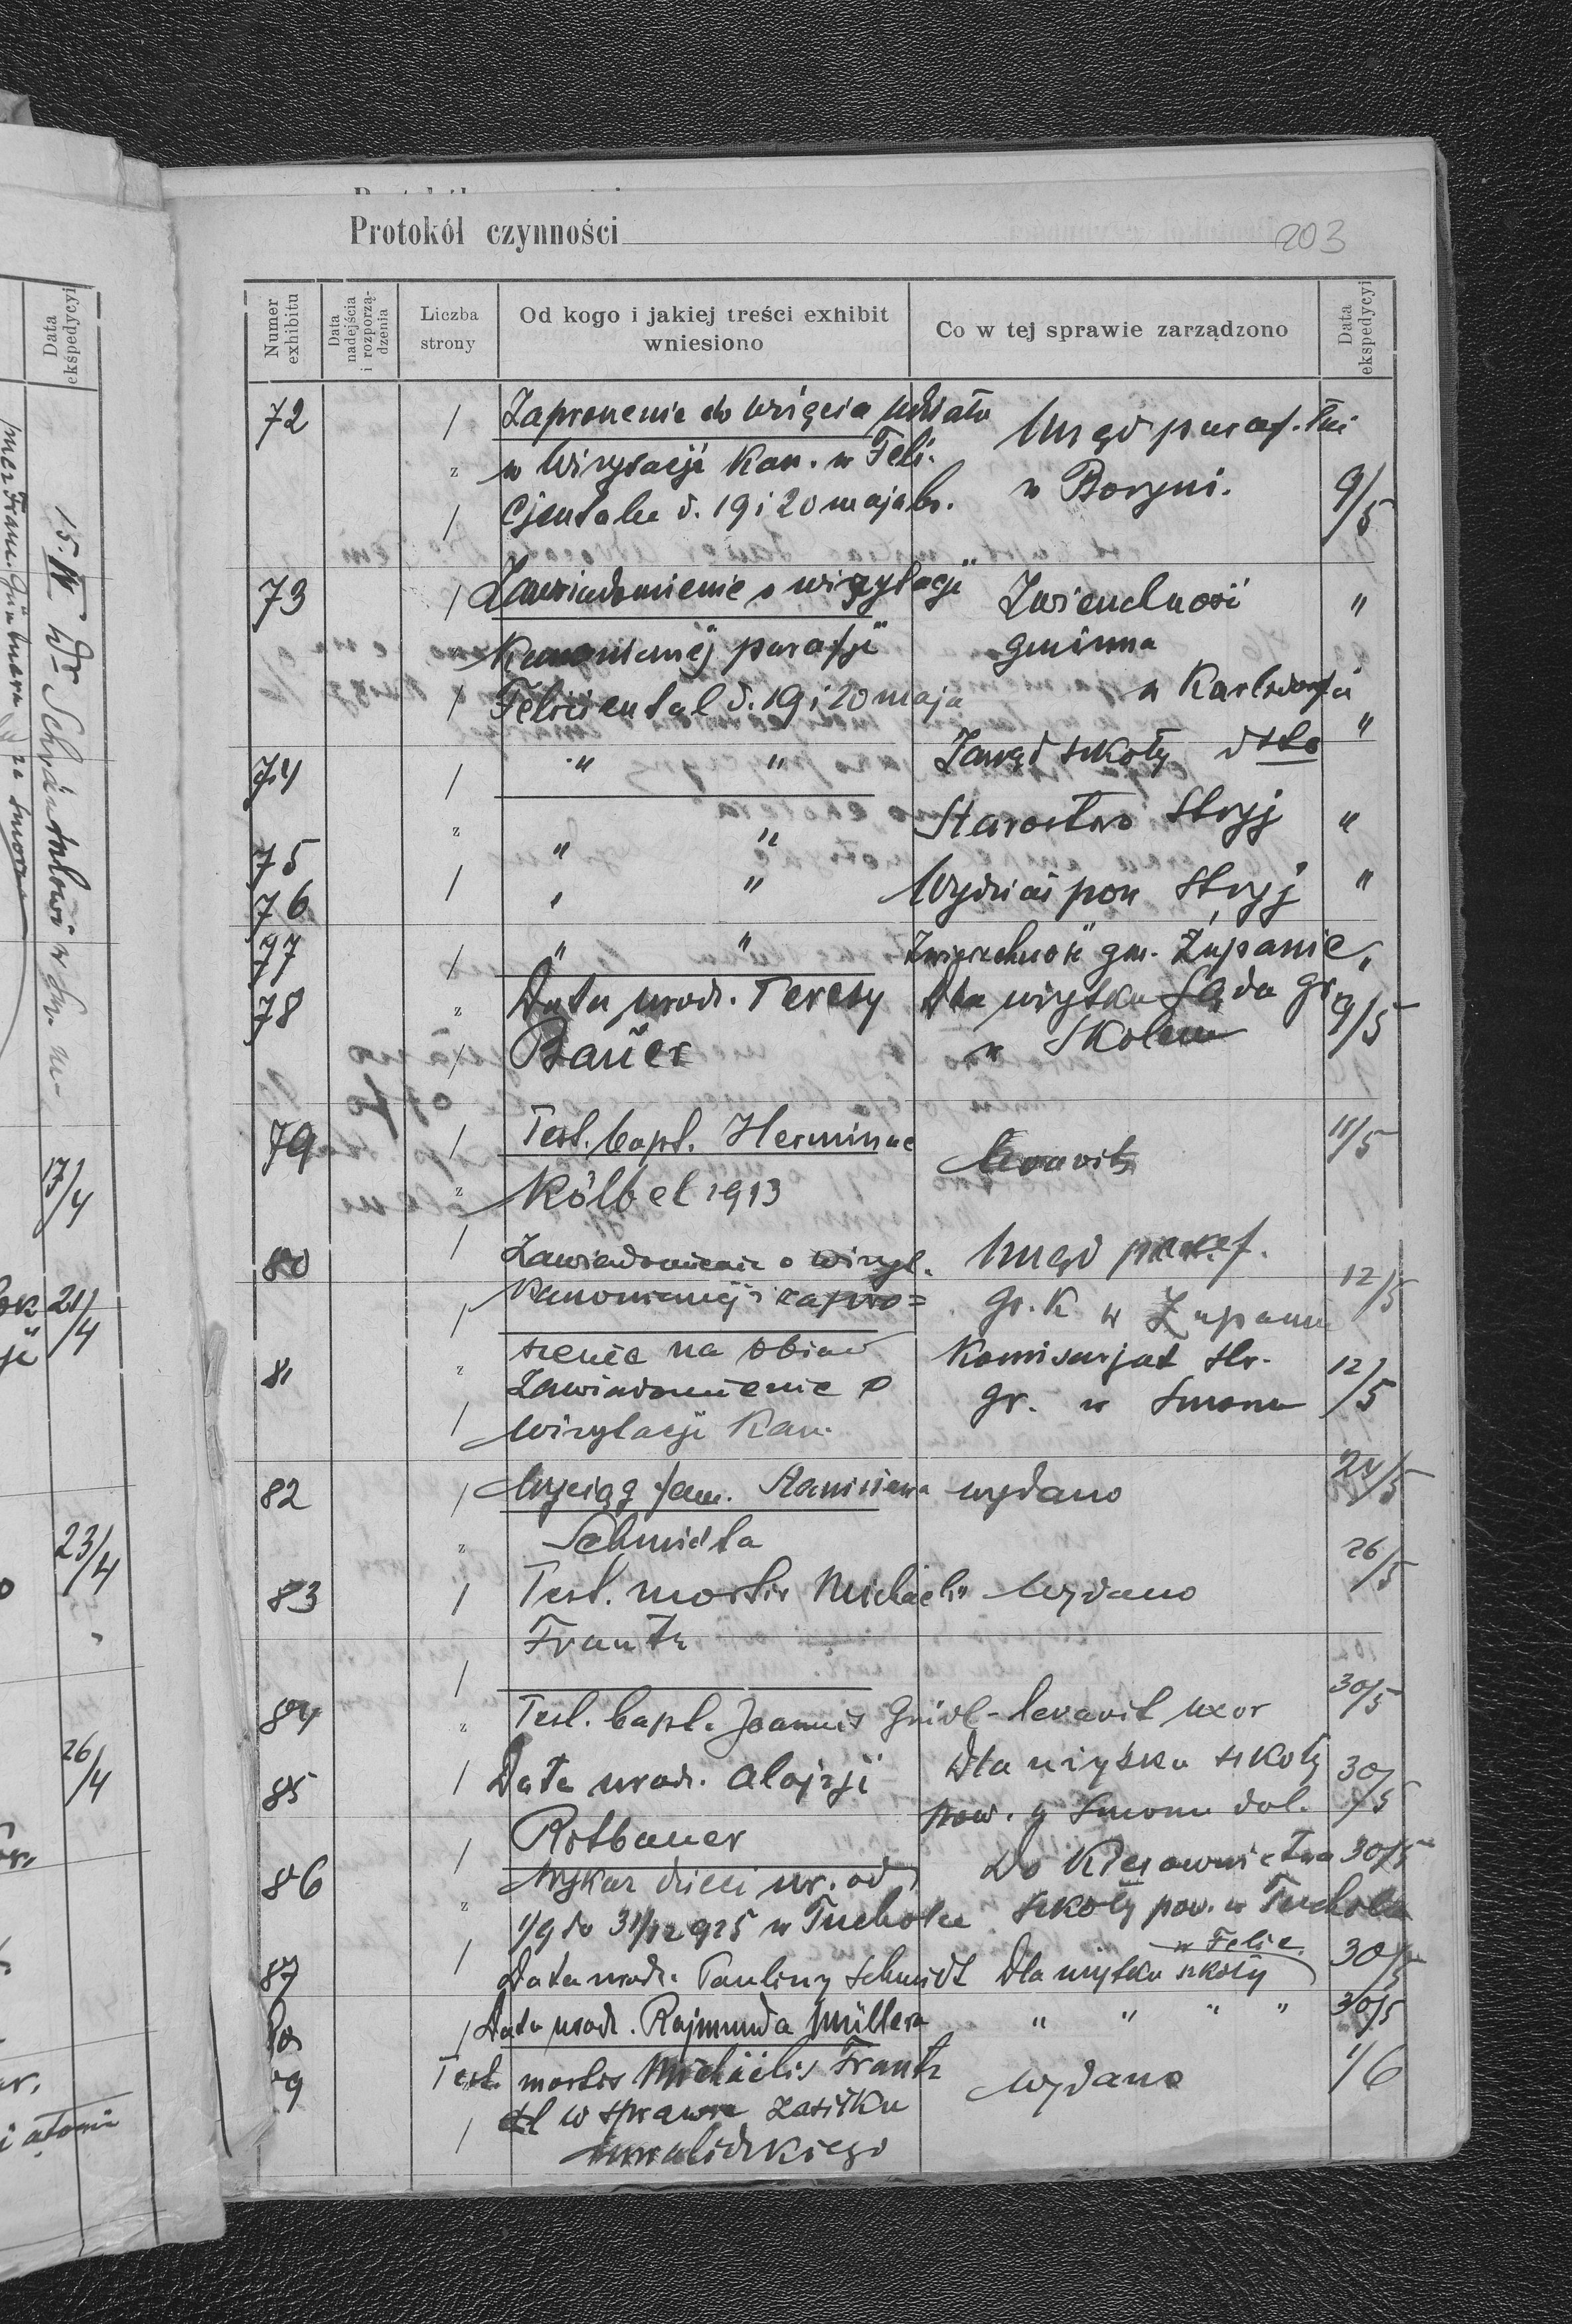 Protokół czynności
203
Numer exhibitu
Data nadejścia i rozporządzenia
Liczba strony
Od kogo i jakiej treści exhibit wniesiono
Co w tej sprawie zarządzono
Data ekspedycyi
72 Zaproszenie do wzięcia udziału Urząd paraf. łac
w Wizytacji Kan. w Feli- w Boryni. 9/5
cjentalu d. 19 i 20 maja br.
73 Zawiadomienie o wizytacji Zwierzchność "
Kanonicznej parafji gminna
Feliciental d. 19 i 20 maja w Karlsdorfie
74 " " Zarząd szkoły dtto "
75 " " Starostwo Stryj "
76 " " Wydział pow Stryj "
77 " " Zwierzchność gm. Żupanie "
78 Data urodz. Teresy Dla użytku Sądu gr. 9/5
Bauer w Skolem
79 Test. bapt. Herminae levavit 11/5
Kölbel 1913
80 Zawiadomienie o wizyt. Urząd paraf. 12/5
Kanonicznej i zapro= gr. K w Żupaniu
szenie na obiad
81 Zawiadomienie o Komisarjat str. 12/5
wizytacji Kan. gr. w Smorzu
82 Wyciąg fam. Stanisława wydano 24/5
Schmidta
83 Test. mortis Michaelis Wydano 26/5
Frantz
84 Test. bapt. Joannis levavit uxor 30/5
85 Data urodz. Alojzji Dla użytku szkoły 30/5
Rotbauer pow. w Smorzu dol.
86 Wykaz dzieci ur. od Do Kierownictwa 30/5
1/9 do 31/12 925 w Tucholce szkoły pow. w Tucholce
w Felic.
87 Data urodz. Pauliny Schmidt Dla użytku szkoły 30/5
88 Data urodz. Rajmunda Müllera " " " " 30/5
89 Test. mortis Michäelis Frantz Wydano 1/6
w sprawie zasiłku
inwalidzkiego
Data ekspedycyi
17/4
21/4
23/4
26/4